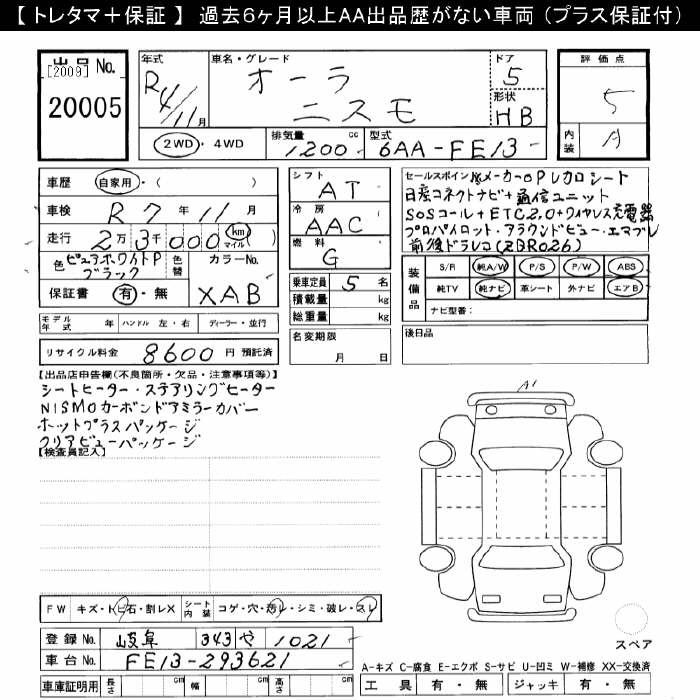 【 トレタマ＋保証 】 過去6ヶ月以上AA出品歴がない車両 (プラス保証付)
出品 No.
[2009]
20005
年式
R4/11月
車名・グレード
オーラ
ニスモ
ドア
5
形状
HB
評価点
5
内装
A
2WD・4WD
排気量 1200 cc
型式 6AA-FE13
車歴 自家用・( )
車検 R 7 年 11 月
走行 2万3千000 km マイル
色 ピュアホワイトP ブラック
色替
カラーNo. XAB
保証書 有・無
シフト AT
冷房 AAC
燃料 G
乗車定員 5 名
積載量 kg
総重量 kg
セールスポイント メーカーOPレカロシート
日産コネクトナビ+通信ユニット
SOSコール+ETC2.0+ワイヤレス充電器
プロパイロット・アラウンドビュー・エマブレ
前後ドラレコ(ZBR026)
装備品
S/R 純A/W P/S P/W ABS
純TV 純ナビ 革シート 外ナビ エアB
ナビ型番:
モデル年式 年 ハンドル 左・右 ディーラー・並行
リサイクル料金 8600 円 預託済
名変期限
月 日
後日品
【出品店申告欄(不良箇所・欠品・注意事項等)】
シートヒーター・ステアリングヒーター
NISMOカーボンドアミラーカバー
ホットプラスパッケージ
クリアビューパッケージ
【検査員記入】
A1
FW キズ・トビ石・割レX
シート内装 コゲ・穴・汚レ・シミ・破レ・スレ
登録 No. 岐阜 343 や 1021
車台 No. FE13-293621
車庫証明用 長さ cm 幅 cm 高さ cm
スペア
A-キズ C-腐食 E-エクボ S-サビ U-凹ミ W-補修 XX-交換済
工具 有・無 ジャッキ 有・無